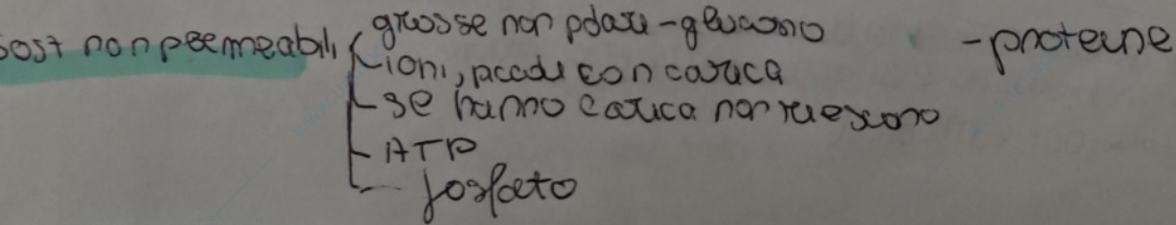 sost non permeabili
grosse non polari - glucosio - proteine
ioni, piccoli con carica
se hanno carica non riescono
ATP
fosfato